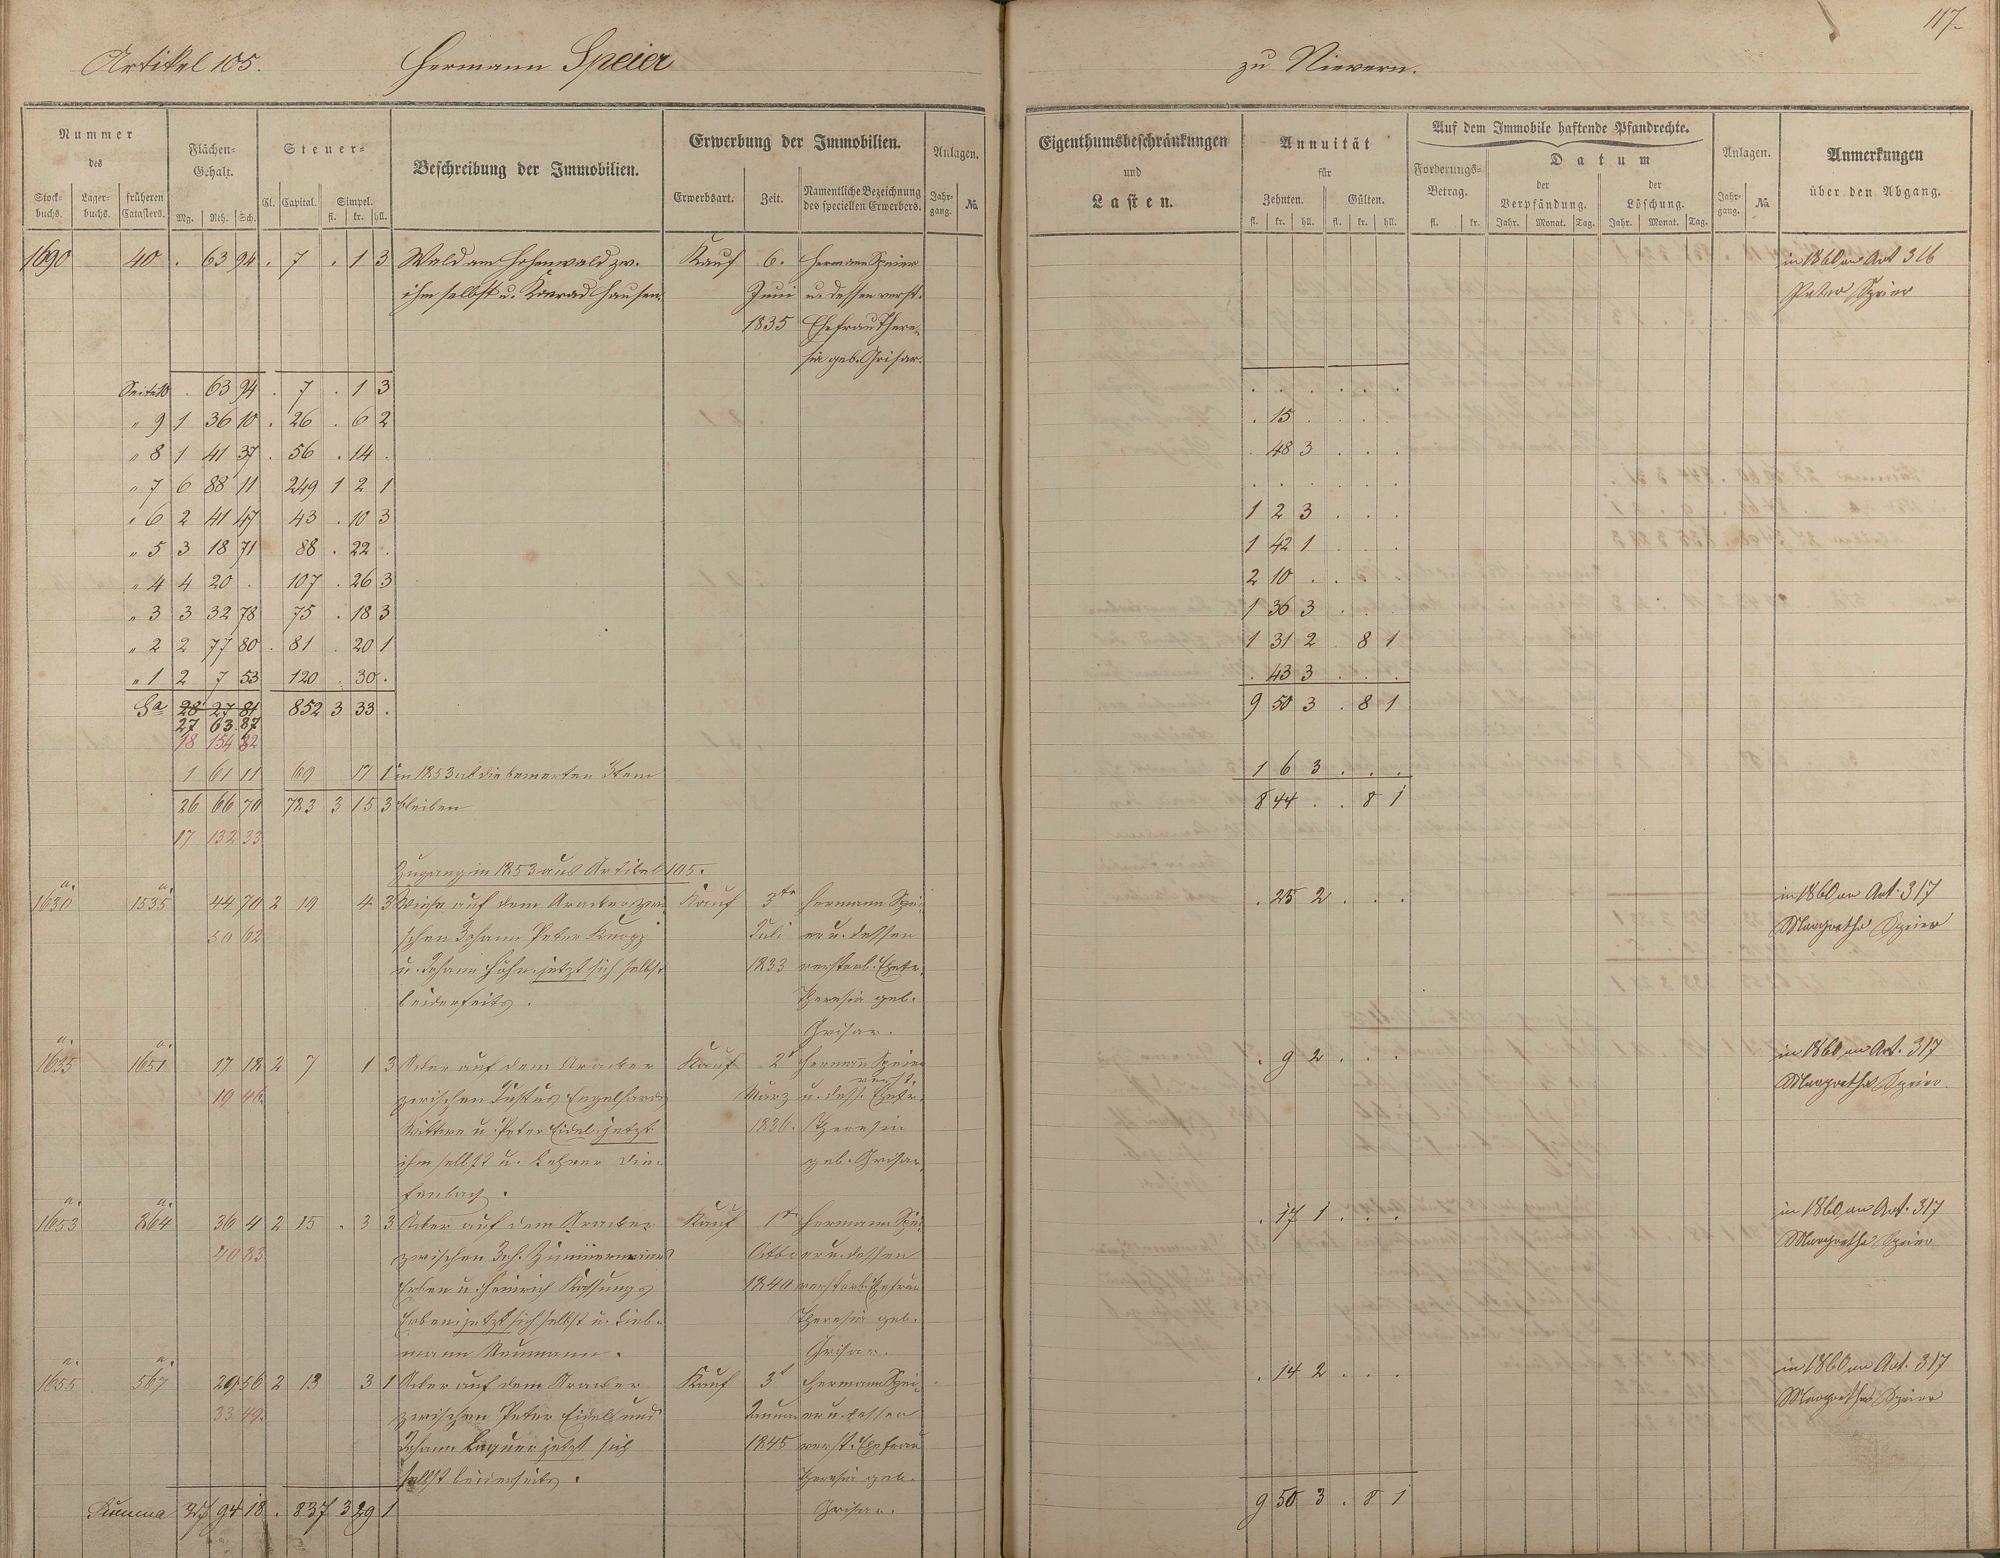 117.
Artikel 105. Hermann Speier zu Nievern.
Nummer des
Stock-buchs. Lager-buchs. früheren Catasters.
Flächen-Gehalt.
Mg. Rth. Sch.
Steuer-
Cl. Capital. Simpel.
fl. kr. hll.
Beschreibung der Immobilien.
Erwerbung der Immobilien.
Erwerbsart. Zeit. Namentliche Bezeichnung des speciellen Erwerbers.
Anlagen.
Jahr-gang. №
Eigenthumsbeschränkungen
und
Lasten.
Annuität
für
Zehnten. Gülten.
fl. kr. hll. fl. kr. hll.
Auf dem Immobile haftende Pfandrechte.
Forderungs-Betrag.
fl. kr.
Datum
der Verpfändung. der Löschung.
Jahr. Monat. Tag. Jahr. Monat. Tag.
Anlagen.
Jahr-gang. №
Anmerkungen
über den Abgang.
1690 40 . 63 94 . 7 . 1 3 Wald am Hohenwald zw. Kauf 6. Hermann Speier in 1860 an Art 316
ihm selbst u. Konrad Hausen Juni u. dessen verst. Peter Speier
1835 Ehefrau There-
sia geb. Grisar.
Seite 10 . 63 94 . 7 . 1 3 . . . . . .
" 9 1 36 10 . 26 . 6 2 . 15 . . . .
" 8 1 41 37 . 56 . 14 . . 48 3 . . .
" 7 6 88 11 249 1 2 1 . . . . . .
" 6 2 41 47 43 . 10 3 1 2 3 . . .
" 5 3 18 71 88 . 22 . 1 42 1 . . .
" 4 4 20 . 107 . 26 3 2 10 . . . .
" 3 3 32 78 75 . 18 3 1 36 3 . . .
" 2 2 77 80 . 81 . 20 1 1 31 2 . 8 1
" 1 2 7 53 120 . 30 . . 43 3 . . .
Sa 28 27 81 852 3 33 . 9 50 3 . 8 1
27 63 87
18 154 82
1 61 11 69 17 1 in 1853 ab die bemerkten Item 1 6 3 . . .
26 66 70 783 3 15 3 bleiben 8 44 . . 8 1
17 132 33
Zugang in 1853 aus Artikel 105.
a. a.
1630 1535 44 70 2 19 4 3 Wiese auf dem Aracker zwi- Kauf 3te Hermann Spei- . 25 2 . . . in 1860 an Art. 317
50 62 schen Johann Peter Knopp Juli er u. dessen Margretha Speier
u. Johann Höhn jetzt sich selbst 1833 verstorb. Ehefr.
beiderseits. Theresia geb.
Grisar.
a. a.
1635 1651 17 18 2 7 1 3 Acker auf dem Aracker Kauf 2t Hermann Speier . 9 2 . . . in 1860 an Art. 317
verst.
19 46 zwischen Justus Engelhards März u. dess. Ehefr. Margretha Speier.
Wittwe u. Peter Eidel jetzt 1836. Theresia
ihm selbst u. Lehrer Die- geb. Grisar
fenbach.
a. a.
1653 864 36 4 2 15 . 3 3 Acker auf dem Aracker Kauf 1t Hermann Spei- . 17 1 . . . in 1860 an Art. 317
40 83 zwischen Joh. Zimmermanns Octbr er u. dessen Margretha Speier
Erben u. Heinrich 1840 verstorb. Ehefrau
Erben jetzt sich selbst u. Lieb- Theresia geb.
mann Neumann. Grisar.
a. a.
1655 567 29 56 2 13 3 1 Acker auf dem Aracker Kauf 3t Hermann Spei- . 14 2 . . . in 1860 an Art. 317
33 49 zwischen Peter Eidels und Januar er u. dessen Margretha Speier
Johann jetzt sich 1845 verst. Ehefrau
selbst beiderseits. Theresia geb.
Summa 27 94 18 . 837 3 29 1 Grisar. 9 50 3 . 8 1